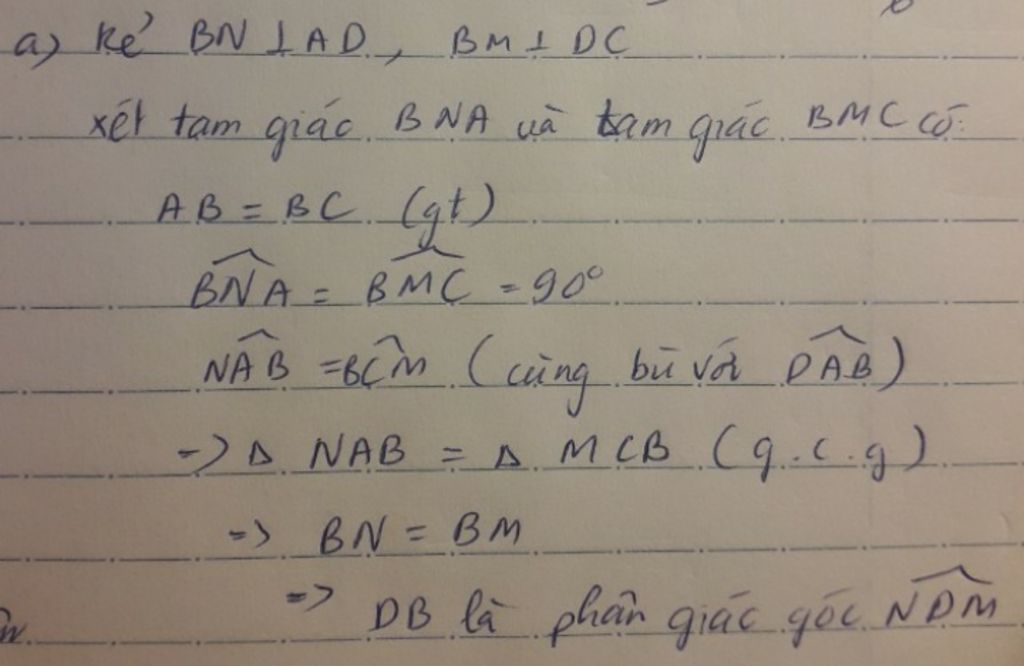 a) kẻ BN ⊥ AD, BM ⊥ DC
xét tam giác BNA và tam giác BMC có:
AB = BC (gt)
\widehat{BNA} = \widehat{BMC} = 90°
\widehat{NAB} = \widehat{BCM} (cùng bù với \widehat{DAB})
=> Δ NAB = Δ MCB (g.c.g)
=> BN = BM
=> DB là phân giác góc \widehat{NDM}